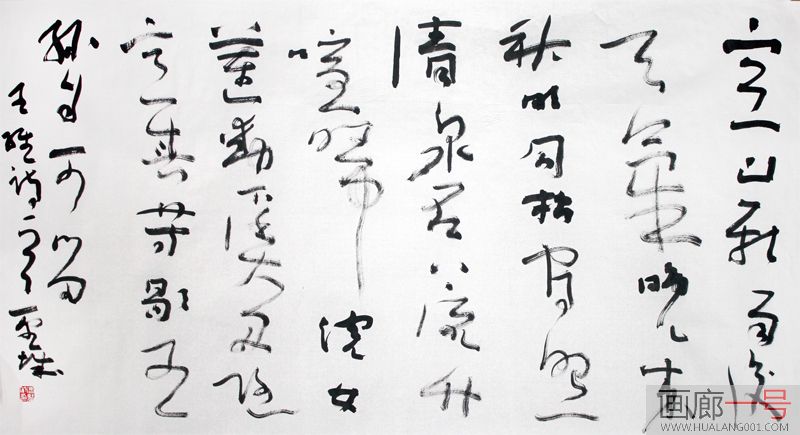 空山新雨後
天氣晚來
秋明月松間照
清泉石上流竹
喧歸浣女
蓮動下漁舟隨
意春芳歇王
孫自可留
王維詩
画廊一号
WWW.HUALANG001.COM